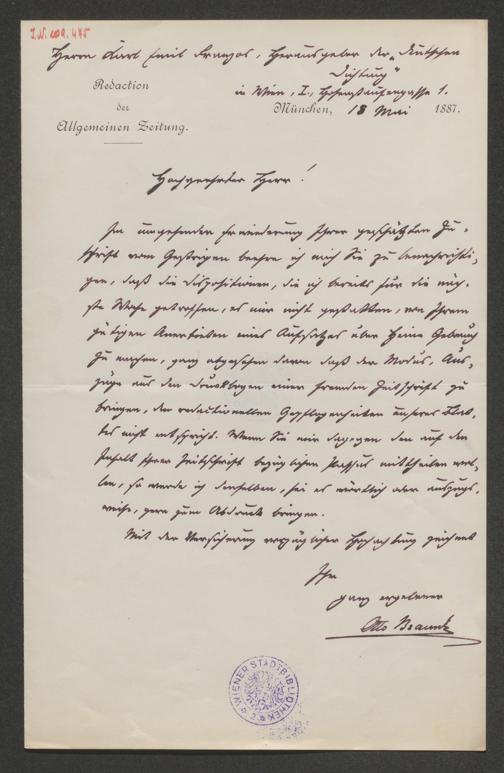 I.N. 109.475
Herrn Karl Emil Franzos, Herausgeber der „Deutschen
Dichtung“
in Wien, I., Hohenstaufengasse 1.
Redaction
der
Allgemeinen Zeitung.
München, 18 Mai 1887.
Hochgeehrter Herr!
In umgehender Erwiederung Ihrer geschätzten Zu-
schrift vom Gestrigen beehre ich mich Sie zu benachrichti-
gen, daß die Dispositionen, die ich bereits für die näch-
ste Woche getroffen, es mir nicht gestatten, von Ihrem
gütigen Anerbieten eines Aufsatzes über Heine Gebrauch
zu machen, ganz abgesehen davon daß der Modus, Aus-
züge aus den Druckbogen einer fremden Zeitschrift zu
bringen, den redactionellen Gepflogenheiten unseres Blat-
tes nicht entspricht. Wenn Sie mir dagegen den auf den
Inhalt Ihrer Zeitschrift bezüglichen Passus mittheilen wol-
len, so werde ich denselben, sei es wörtlich oder auszugs-
weise, gern zum Abdruck bringen.
Mit der Versicherung vorzüglicher Hochachtung zeichnet
Ihr
ganz ergebener
Otto Braun
WIENER STADTBIBLIOTHEK